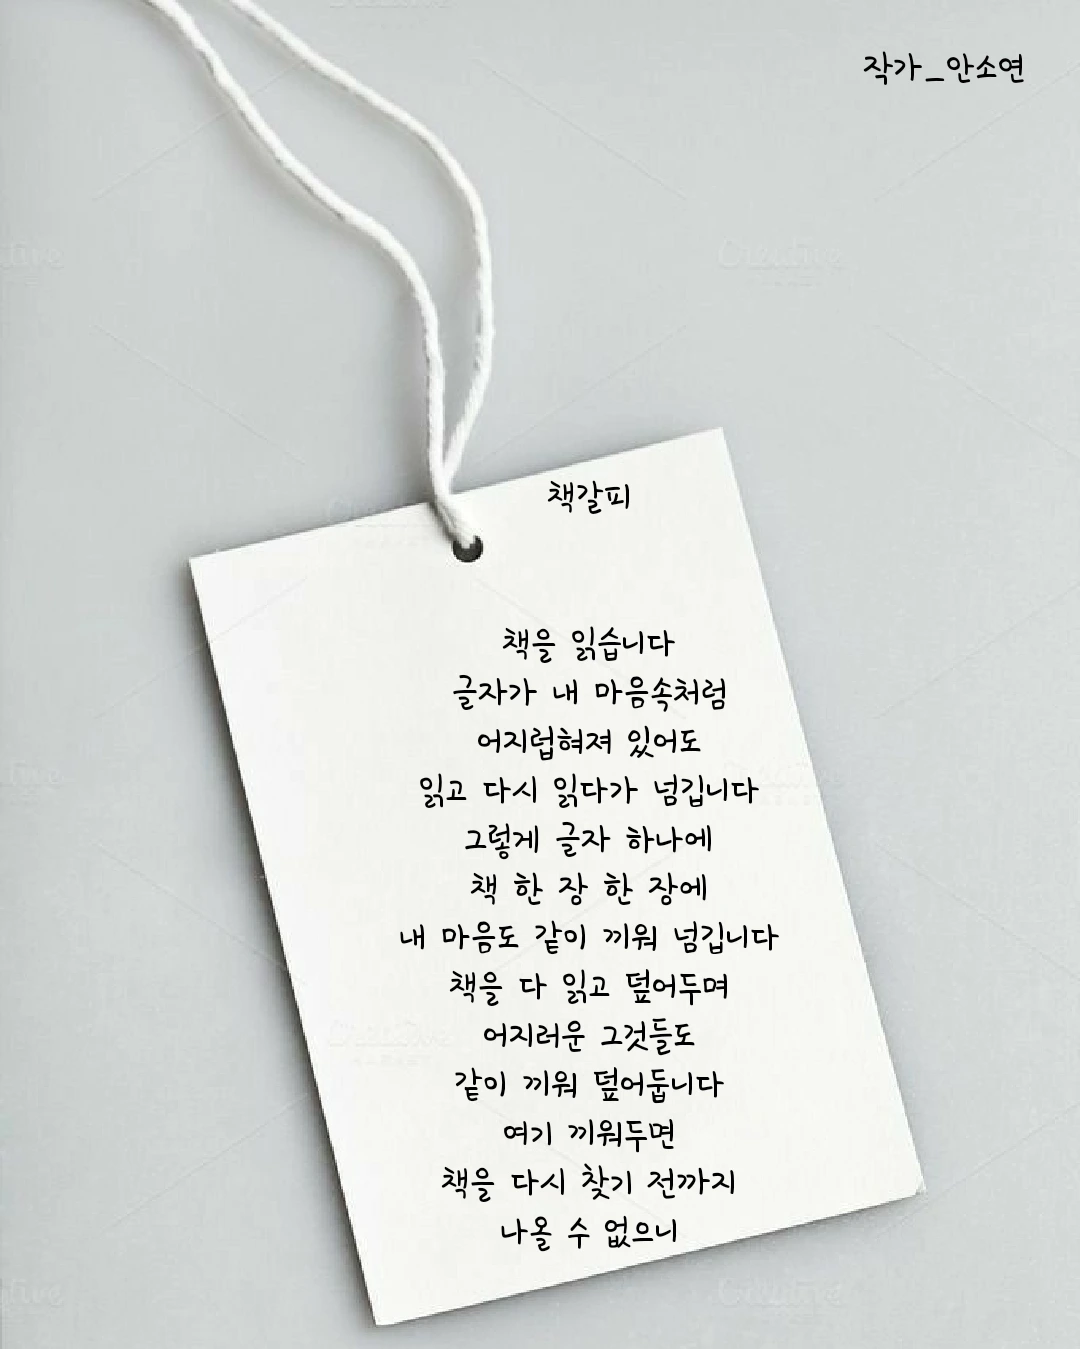 작가_안소연
책갈피
책을 읽습니다
글자가 내 마음속처럼
어지럽혀져 있어도
읽고 다시 읽다가 넘깁니다
그렇게 글자 하나에
책 한 장 한 장에
내 마음도 같이 끼워 넘깁니다
책을 다 읽고 덮어두며
어지러운 그것들도
같이 끼워 덮어둡니다
여기 끼워두면
책을 다시 찾기 전까지
나올 수 없으니